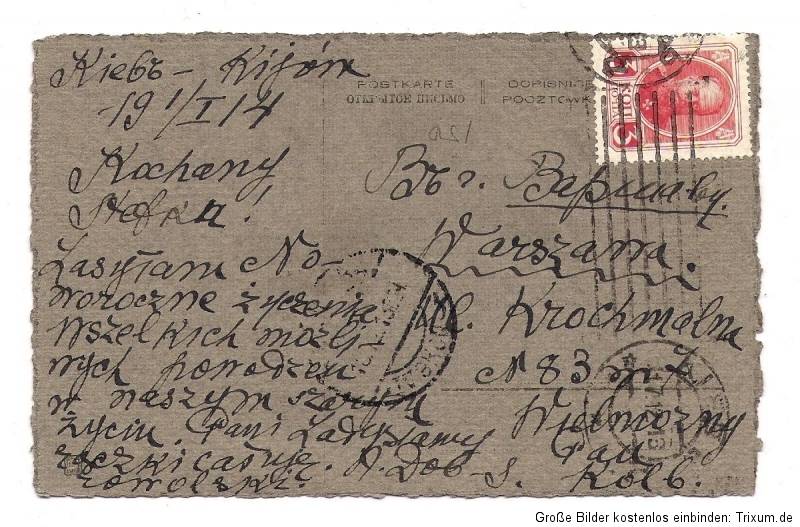 Кіевъ – Kijów
19 1/I 14
Kochany
Stefku!
Zasyłam No-
woroczne życzenia
wszelkich możli-
wych powodzeń
w naszym szarym
życiu. Pani Ładysławy
rączki całuję. A. Dob-
rowolski
POSTKARTE
ОТКРЫТОЕ ПИСЬМО
DOPISNICE
POCZTÓWK
Въ г. Варшаву.
Warszawa.
Ul. Krochmalna
N 83 m
Wielmożny
Pan
S. Kolb.
3 КОП
Große Bilder kostenlos einbinden: Trixum.de